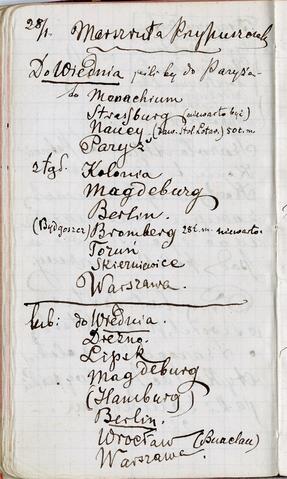 28/1. Marszruta Przypuszczal.
Do Wiednia jeśliby do Paryża
to Monachium
Strassburg (niewarto być)
Nancy (daw. stol. Lotar.) 50 t. m
Paryż
2 tyg. Kolonia
Magdeburg
Berlin.
(Bydgoszcz) Bromberg 28 t. m. niewarto.
Toruń
Skierniewice
Warszawa.
lub: do Wiednia.
Drezno.
Lipsk
Magdeburg
(Hamburg)
Berlin.
Wrocław (Breslau)
Warszawa.